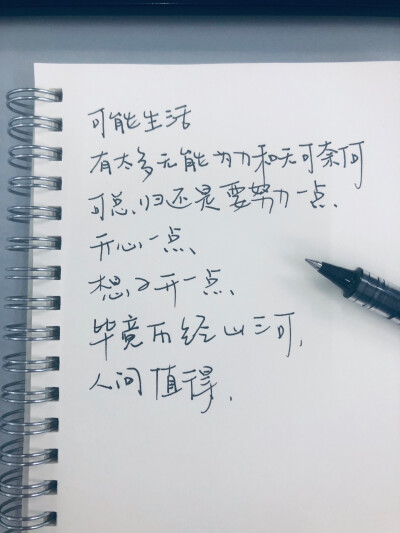 可能生活
有太多无能为力和无可奈何
可总归还是要努力一点、
开心一点、
想不开一点、
毕竟历经山河，
人间值得.